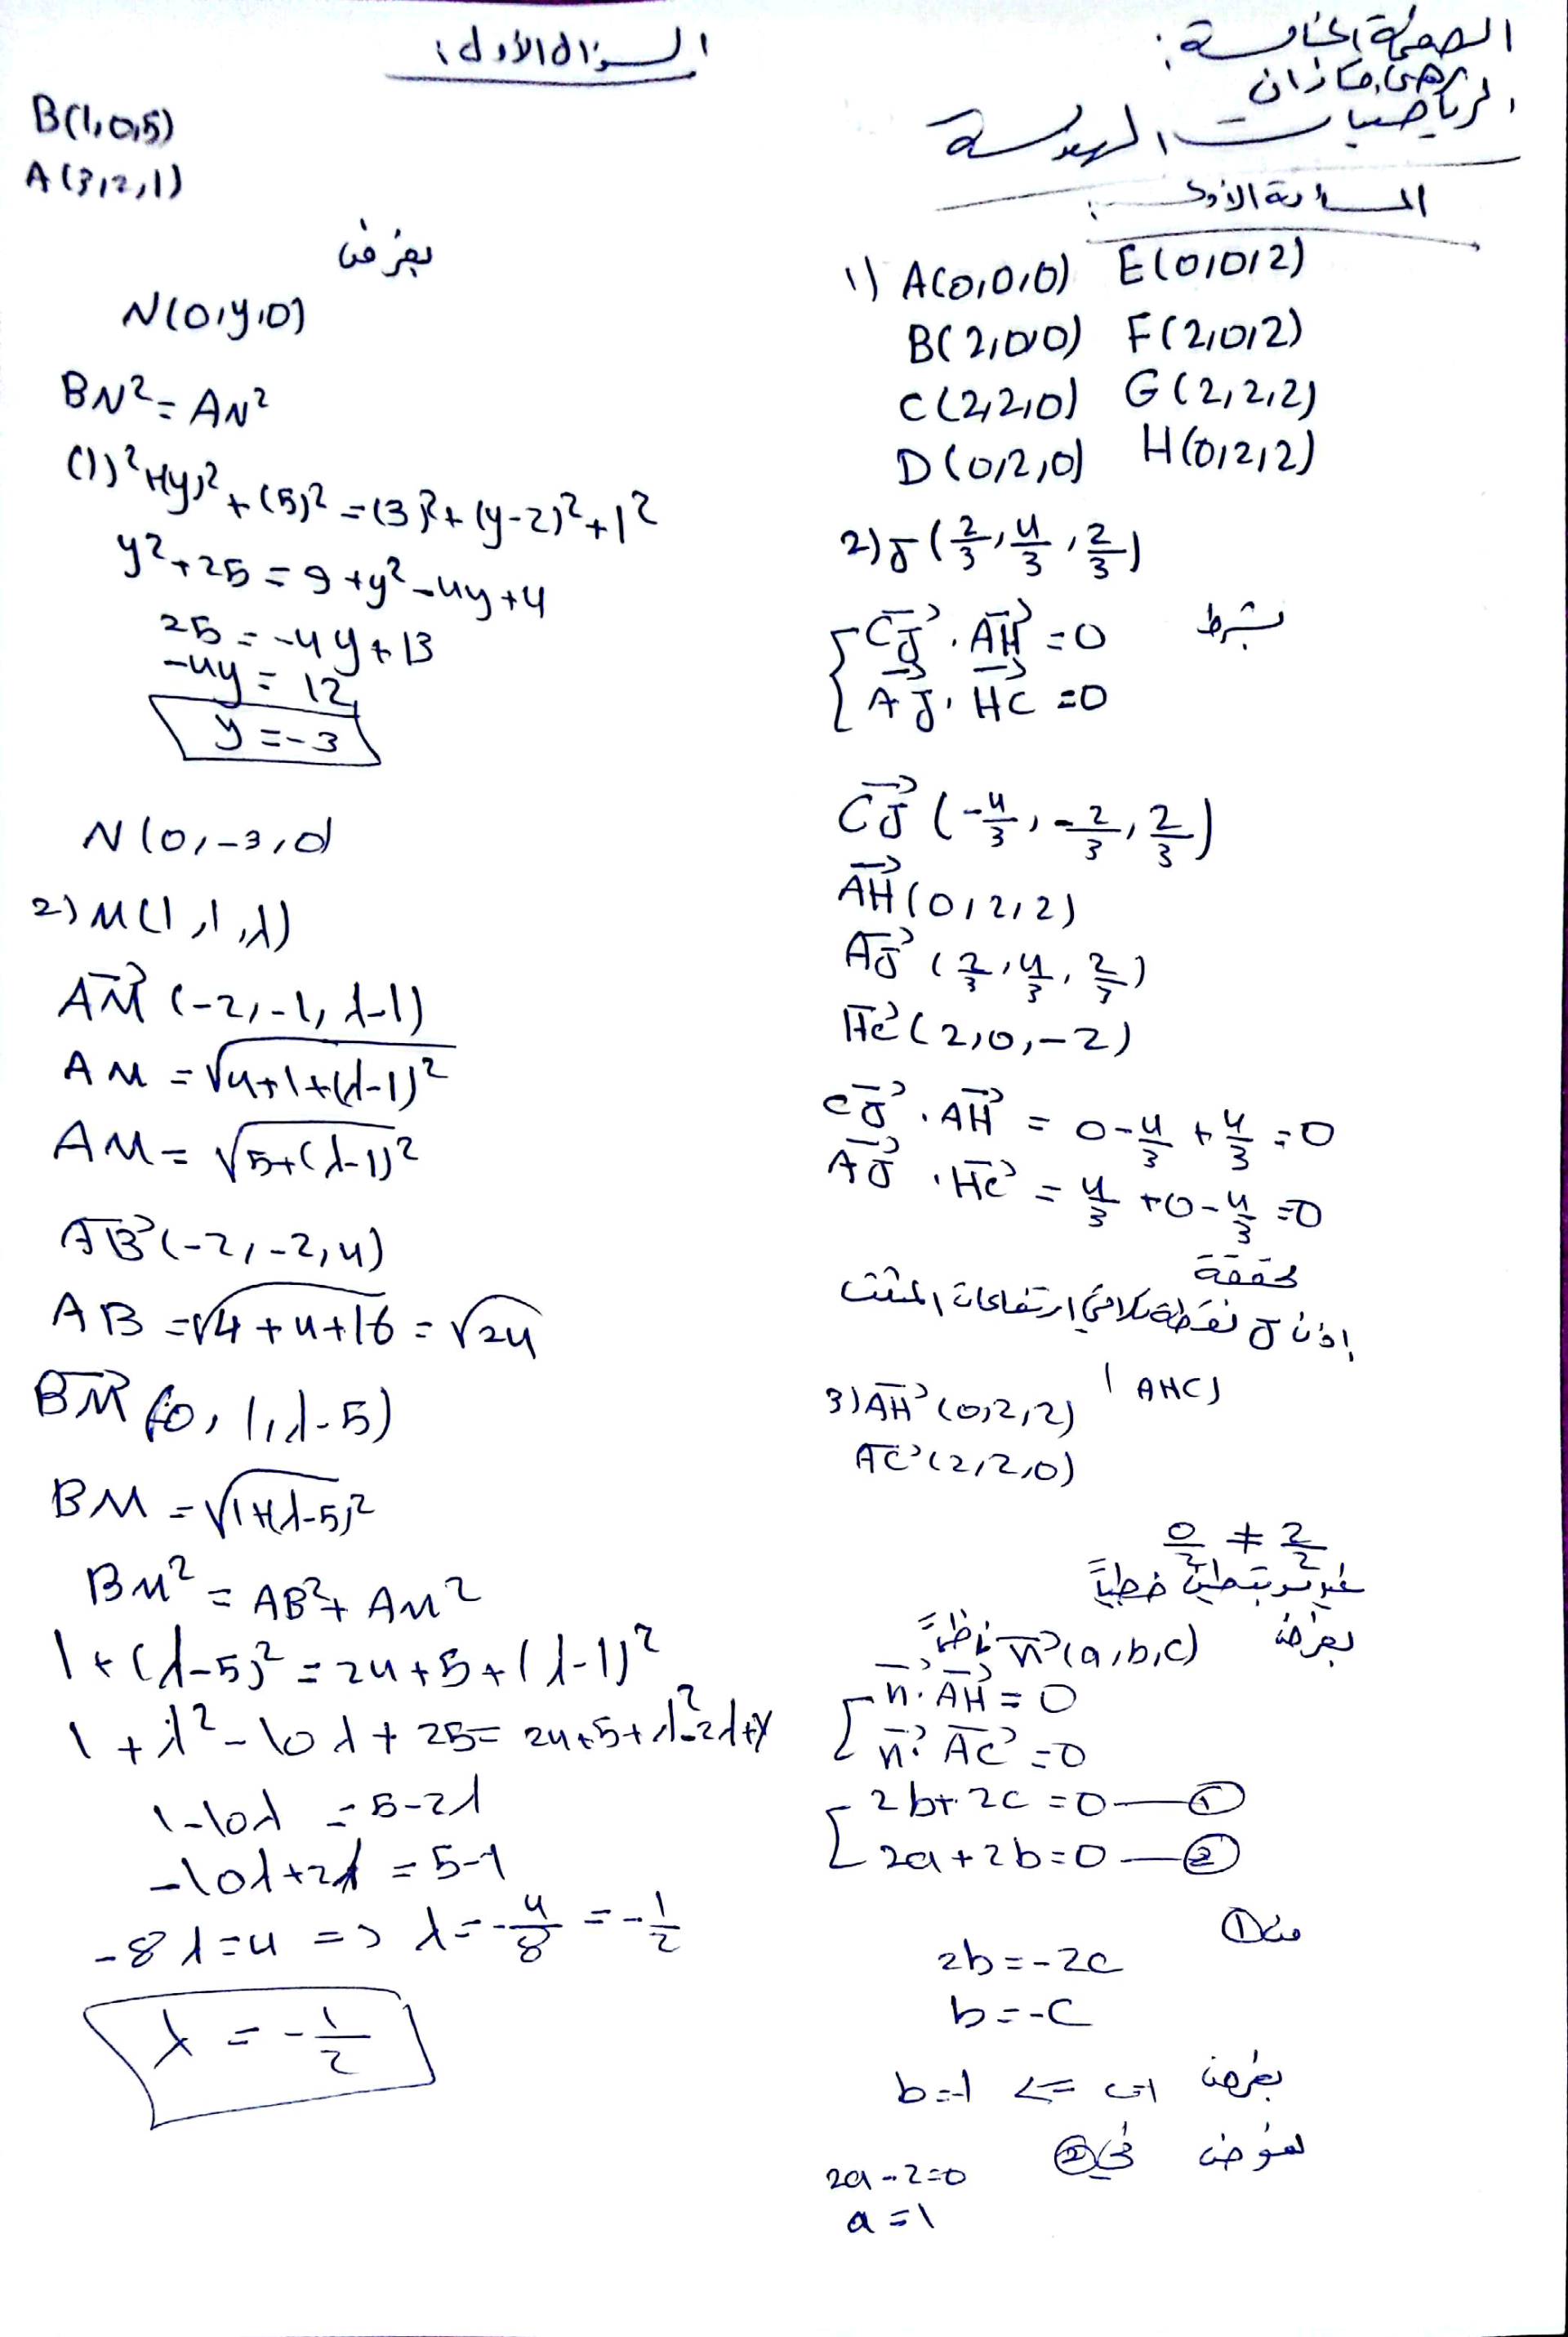 الصفحة الخامسة:
الرياضيات الهندسة
المسألة الأولى:
1) A(0,0,0) E(0,0,2)
B(2,0,0) F(2,0,2)
C(2,2,0) G(2,2,2)
D(0,2,0) H(0,2,2)
2) J (2/3, 4/3, 2/3)
بشرط
{ CJ⃗ . AH⃗ = 0
AJ⃗ . HC⃗ = 0
CJ⃗ (-4/3, -2/3, 2/3)
AH⃗ (0,2,2)
AJ⃗ (2/3, 4/3, 2/3)
HC⃗ (2,0,-2)
CJ⃗ . AH⃗ = 0 - 4/3 + 4/3 = 0
AJ⃗ . HC⃗ = 4/3 + 0 - 4/3 = 0
محققة
إذن J نقطة تلاقي ارتفاعات المثلث
AHC
3) AH⃗ (0,2,2)
AC⃗ (2,2,0)
0/2 ≠ 2/2
غير مرتبطين خطياً
بفرض n⃗(a,b,c) ناظماً
{ n⃗ . AH⃗ = 0
n⃗ . AC⃗ = 0
{ 2b + 2c = 0 — ①
2a + 2b = 0 — ②
من ①
2b = -2c
b = -c
بفرض c=1 => b=-1
نعوض في ②
2a - 2 = 0
a = 1
السؤال الأول:
B(1,0,5)
A(3,2,1)
بفرض
N(0,y,0)
BN² = AN²
(1)² + (y)² + (5)² = (3)² + (y-2)² + 1²
y² + 25 = 9 + y² - 4y + 4
25 = -4y + 13
-4y = 12
y = -3
N(0,-3,0)
2) M(1,1,λ)
AM⃗ (-2,-1,λ-1)
AM = √4+1+(λ-1)²
AM = √5+(λ-1)²
AB⃗ (-2,-2,4)
AB = √4+4+16 = √24
BM⃗ (0,1,λ-5)
BM = √1+(λ-5)²
BM² = AB² + AM²
1 + (λ-5)² = 24 + 5 + (λ-1)²
1 + λ² - 10λ + 25 = 24+5+λ²-2λ+1
1-10λ = 5-2λ
-10λ+2λ = 5-1
-8λ = 4 => λ = -4/8 = -1/2
λ = -1/2